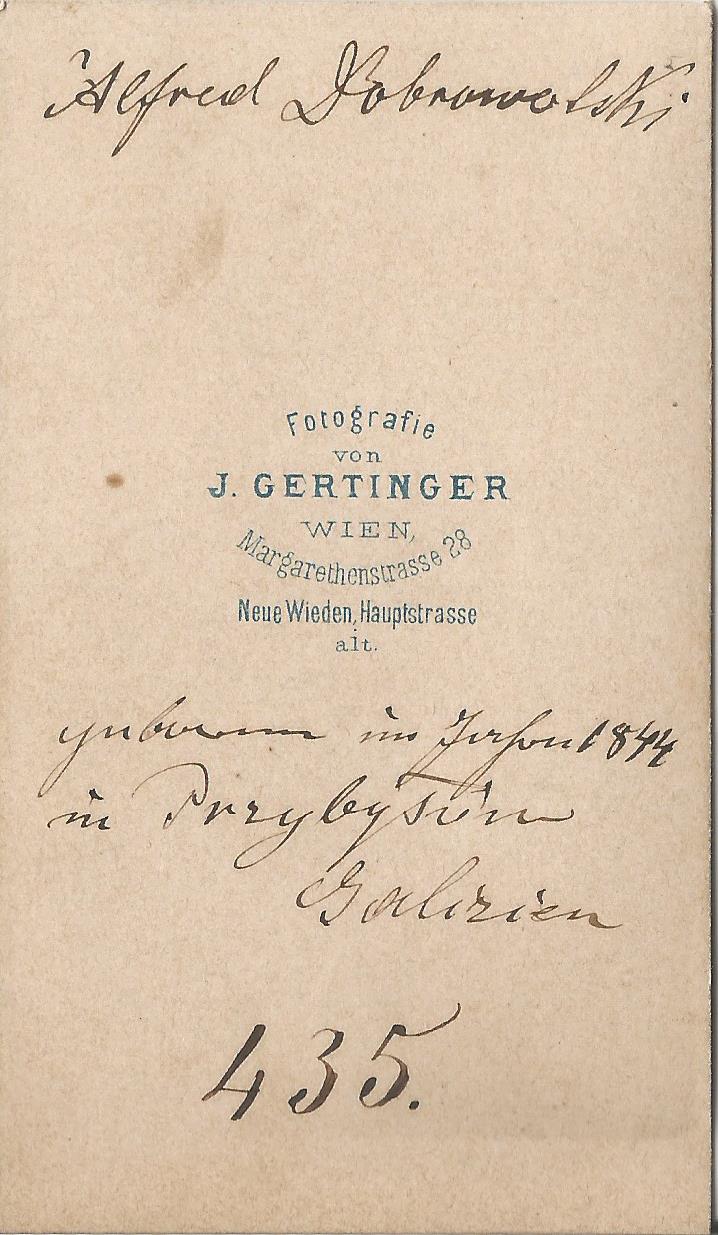 Alfred Dobrowolski
Fotografie
von
J. GERTINGER
WIEN,
Margarethenstrasse 28
Neue Wieden, Hauptstrasse
alt.
geboren im Jahre 1844
in Przybysów
Galizien
435.